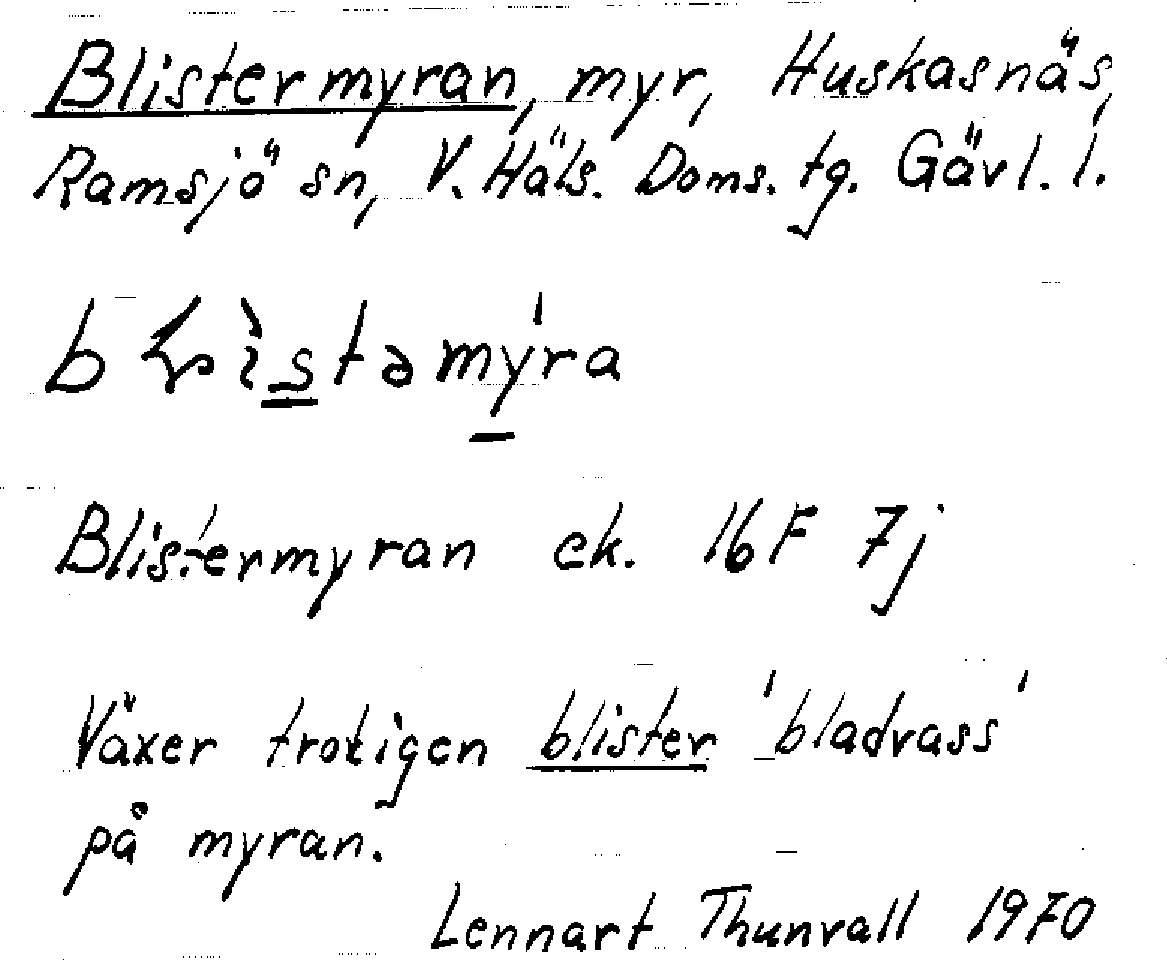 Blistermyran, myr, Huskasnäs,
Ramsjö sn, V. Häls. Doms. tg. Gävl. l.
Blistermyran ek. 16F 7j
Växer troligen blister 'bladvass'
på myran.
Lennart Thunvall 1970